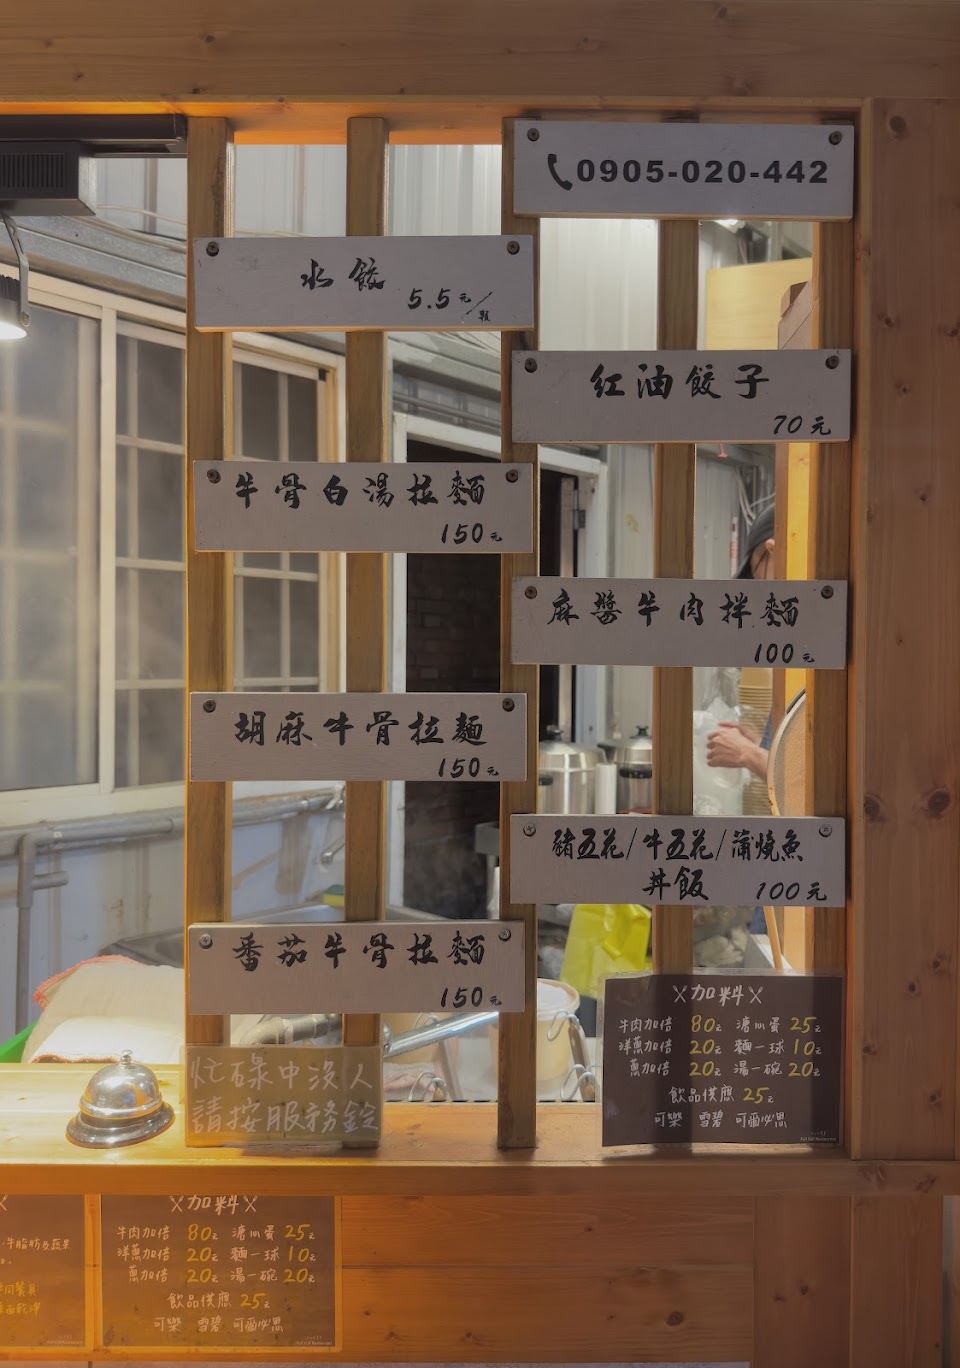 0905-020-442
水餃
5.5元/顆
紅油餃子
70元
牛骨白湯拉麵
150元
麻醬牛肉拌麵
100元
胡麻牛骨拉麵
150元
豬五花/牛五花/蒲燒魚
丼飯 100元
番茄牛骨拉麵
150元
忙碌中沒人
請按服務鈴
加料
牛肉加倍 80元 溏心蛋 25元
洋蔥加倍 20元 麵一球 10元
蔥加倍 20元 湯一碗 20元
飲品供應 25元
可樂 雪碧 可爾必思
加料
牛肉加倍 80元 溏心蛋 25元
洋蔥加倍 20元 麵一球 10元
蔥加倍 20元 湯一碗 20元
飲品供應 25元
可樂 雪碧 可爾必思